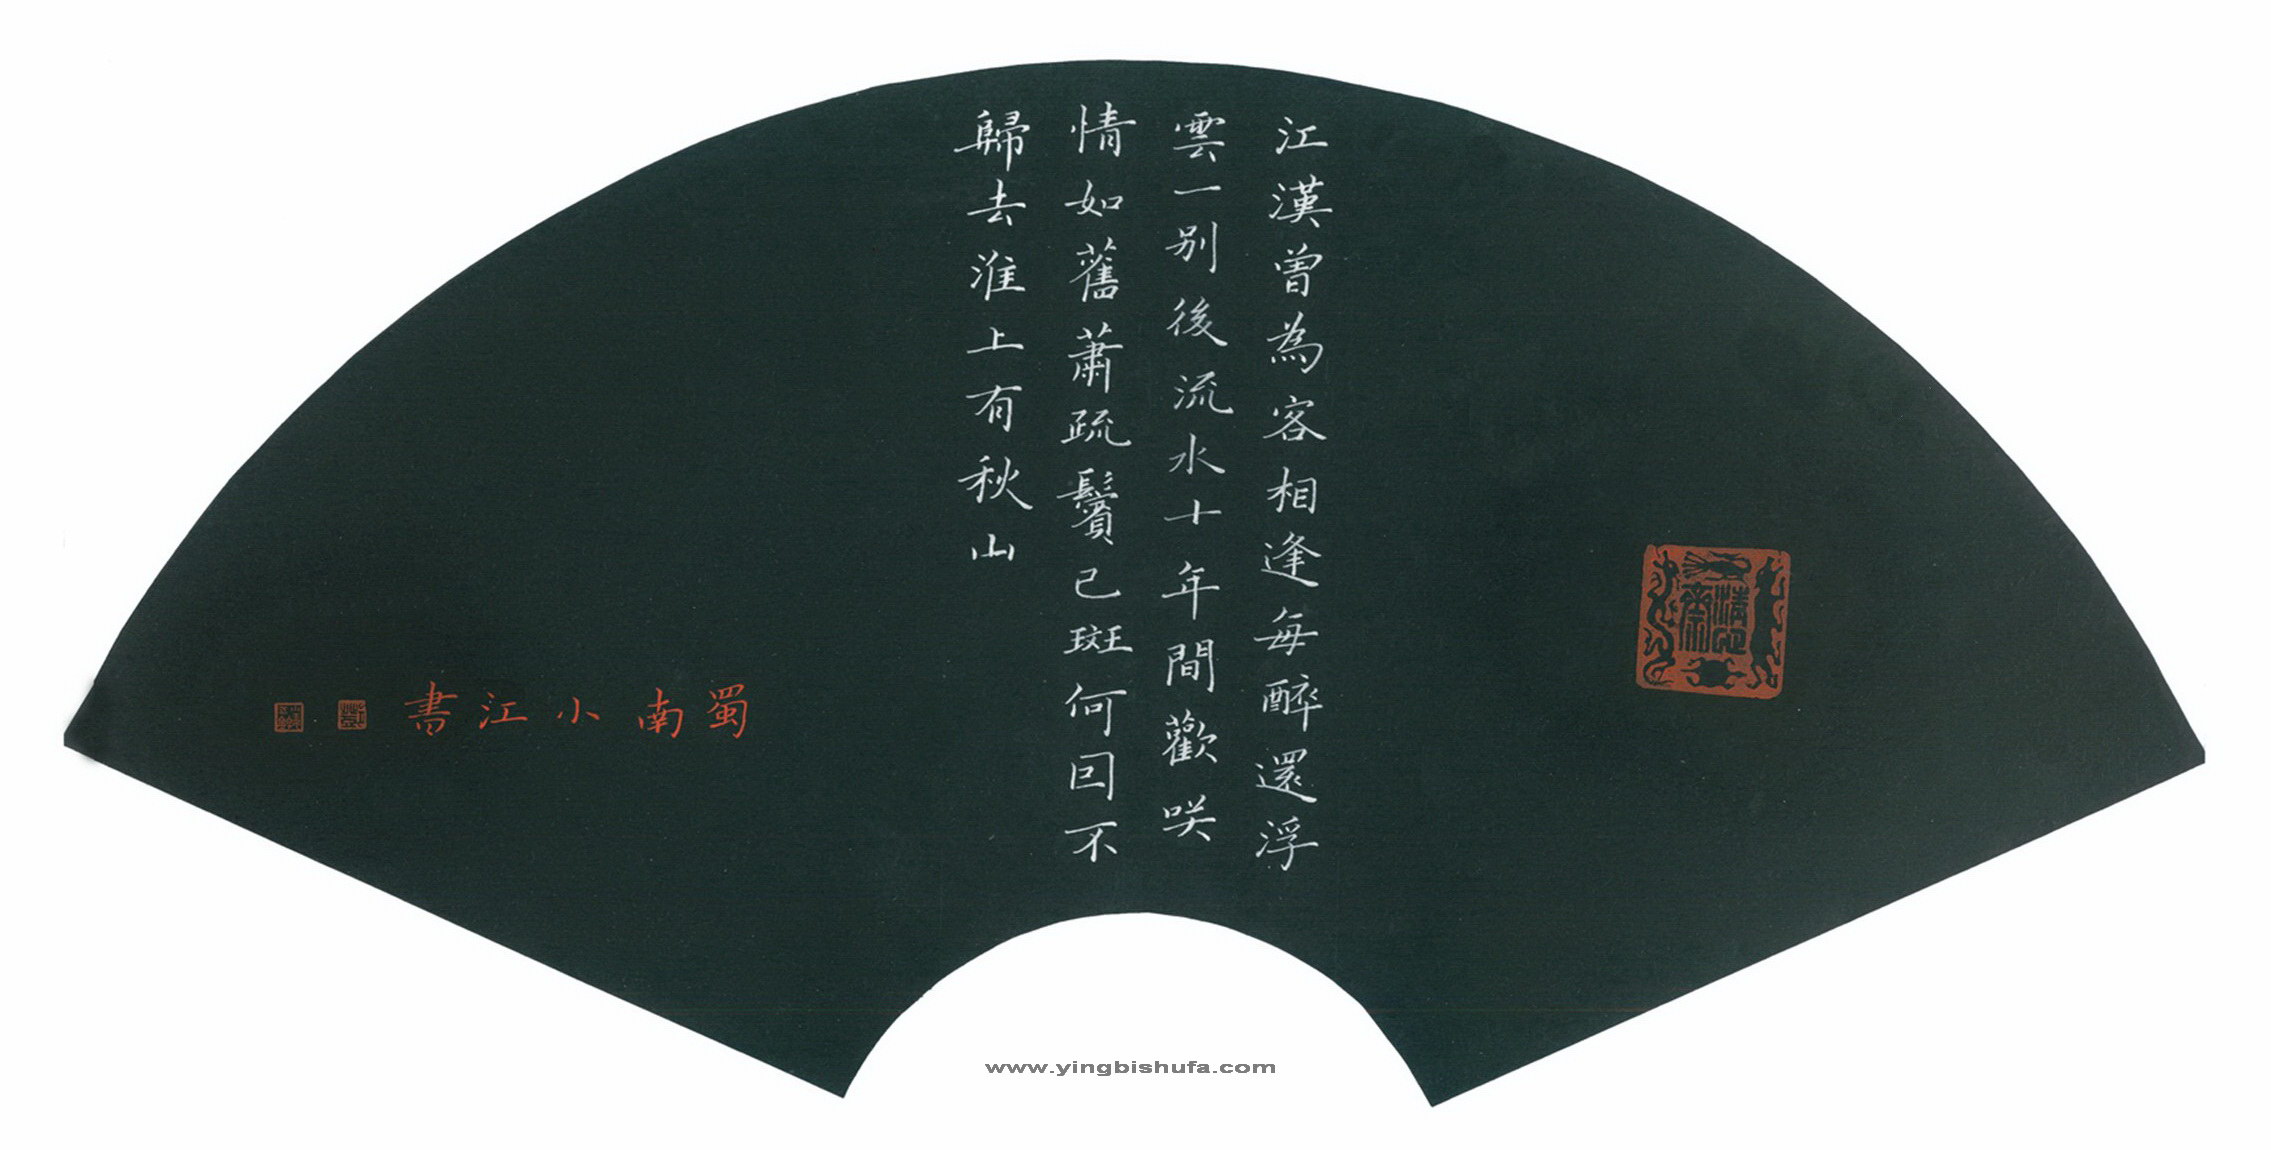 江漢曾為客相逢每醉還浮
雲一别後流水十年間歡咲
情如舊蕭疏鬢已斑何囙不
歸去淮上有秋山
蜀南小江書
www.yingbishufa.com